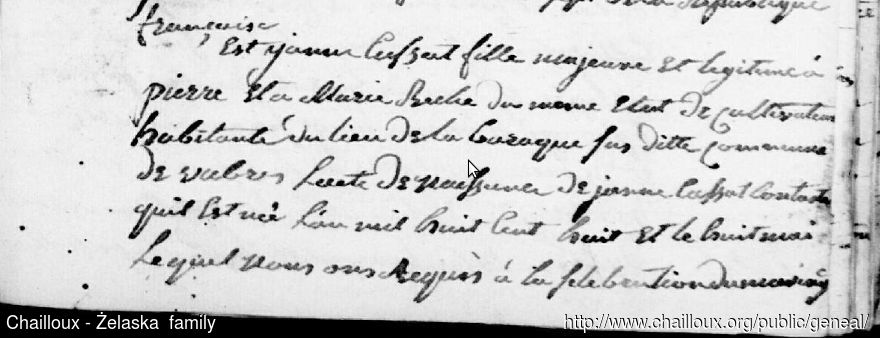 Republique
françoise
Est janne Cussat fille majeure Et legitime à
pierre Et a Marie Reche du meme Etat de Cultivateur
habitants du lieu de la baraque sus ditte Commune
de vabres Lacte de naissance de janne Cussat Constate
quil Est née Lan mil huit Cent huit Et le huit mai
Lequel nous ons Requis à la selebration du mariag
Chailloux - Żelaska family
http://www.chailloux.org/public/geneal/